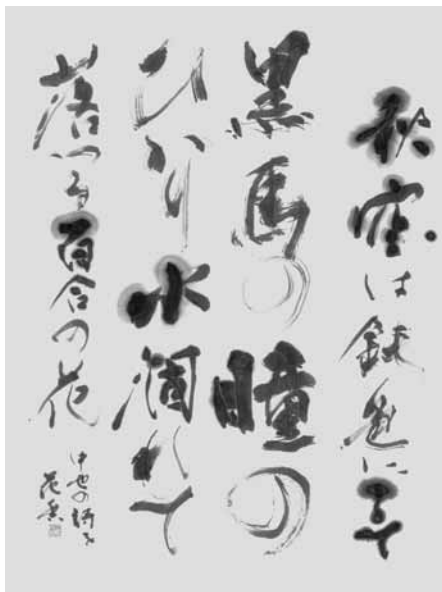 秋空は鈍色にして
黒馬の瞳の
ひかり水涸れて
落つる百合の花
中也の詩を